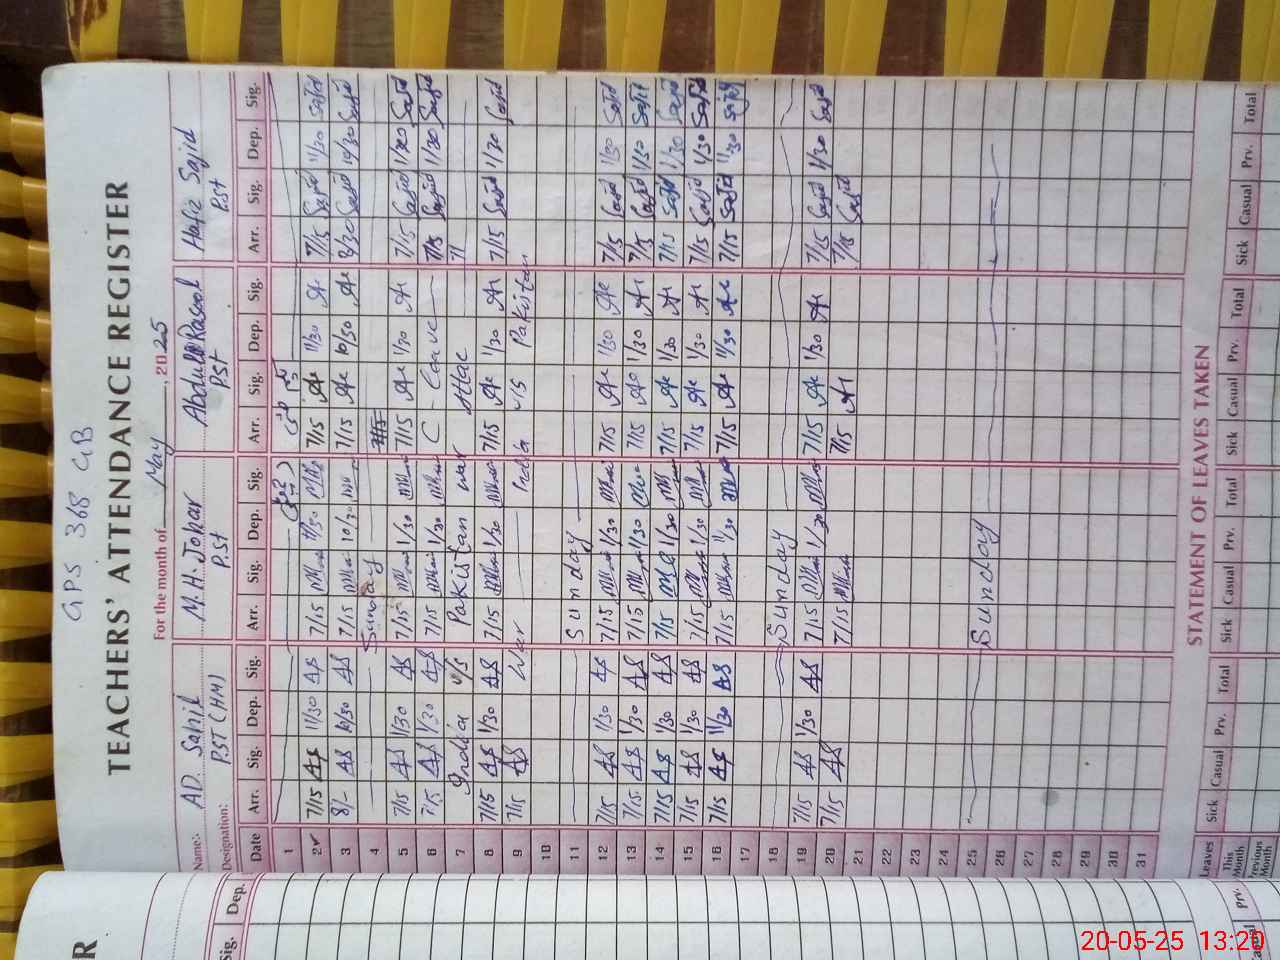 GPS 368 GB
TEACHERS' ATTENDANCE REGISTER
For the month of May, 2025
Name: AD. Sahil M.H. Johar Abdul Rasool Hafiz Sajid
Designation: PST (HM) P.St P.St P.St
Date Arr. Sig. Dep. Sig. Arr. Sig. Dep. Sig. Arr. Sig. Dep. Sig. Arr. Sig. Dep. Sig.
1
2 7/15 AS 11/30 AS 7/15 11/30 7/15 11/30 7/15 Sajid 11/30 Sajid
3 8/- AS 10/30 AS 7/15 10/30 7/15 10/30 8/30 Sajid 10/30 Sajid
4 Sunday
5 7/15 AS 1/30 AS 7/15 1/30 7/15 1/30 7/15 Sajid 1/30 Sajid
6 7/15 AS 1/30 AS 7/15 1/30 C - Leave 7/15 Sajid 1/30 Sajid
7 India v/s Pakistan war 7/
8 7/15 AS 1/30 AS 7/15 1/30 7/15 1/30 7/15 Sajid 1/30 Sajid
9 7/15 AS War India v/s Pakistan
10
11 Sunday
12 7/15 AS 1/30 AS 7/15 1/30 7/15 1/30 7/15 Sajid 1/30 Sajid
13 7/15 AS 1/30 AS 7/15 1/30 7/15 1/30 7/15 Sajid 1/30 Sajid
14 7/15 AS 1/30 AS 7/15 1/30 7/15 1/30 7/15 Sajid 1/30 Sajid
15 7/15 AS 1/30 AS 7/15 1/30 7/15 1/30 7/15 Sajid 1/30 Sajid
16 7/15 AS 11/30 AS 7/15 11/30 7/15 11/30 7/15 Sajid 11/30 Sajid
17
18 Sunday
19 7/15 AS 1/30 AS 7/15 1/30 7/15 1/30 7/15 Sajid 1/30 Sajid
20 7/15 AS 7/15 7/15 7/15 Sajid
21
22
23
24
25 Sunday
26
27
28
29
30
31
STATEMENT OF LEAVES TAKEN
Leaves Sick Casual Prv. Total Sick Casual Prv. Total Sick Casual Prv. Total Sick Casual Prv. Total
This Month
Previous Month
R
Sig. Dep.
Casual Prv.
20-05-25 13:20